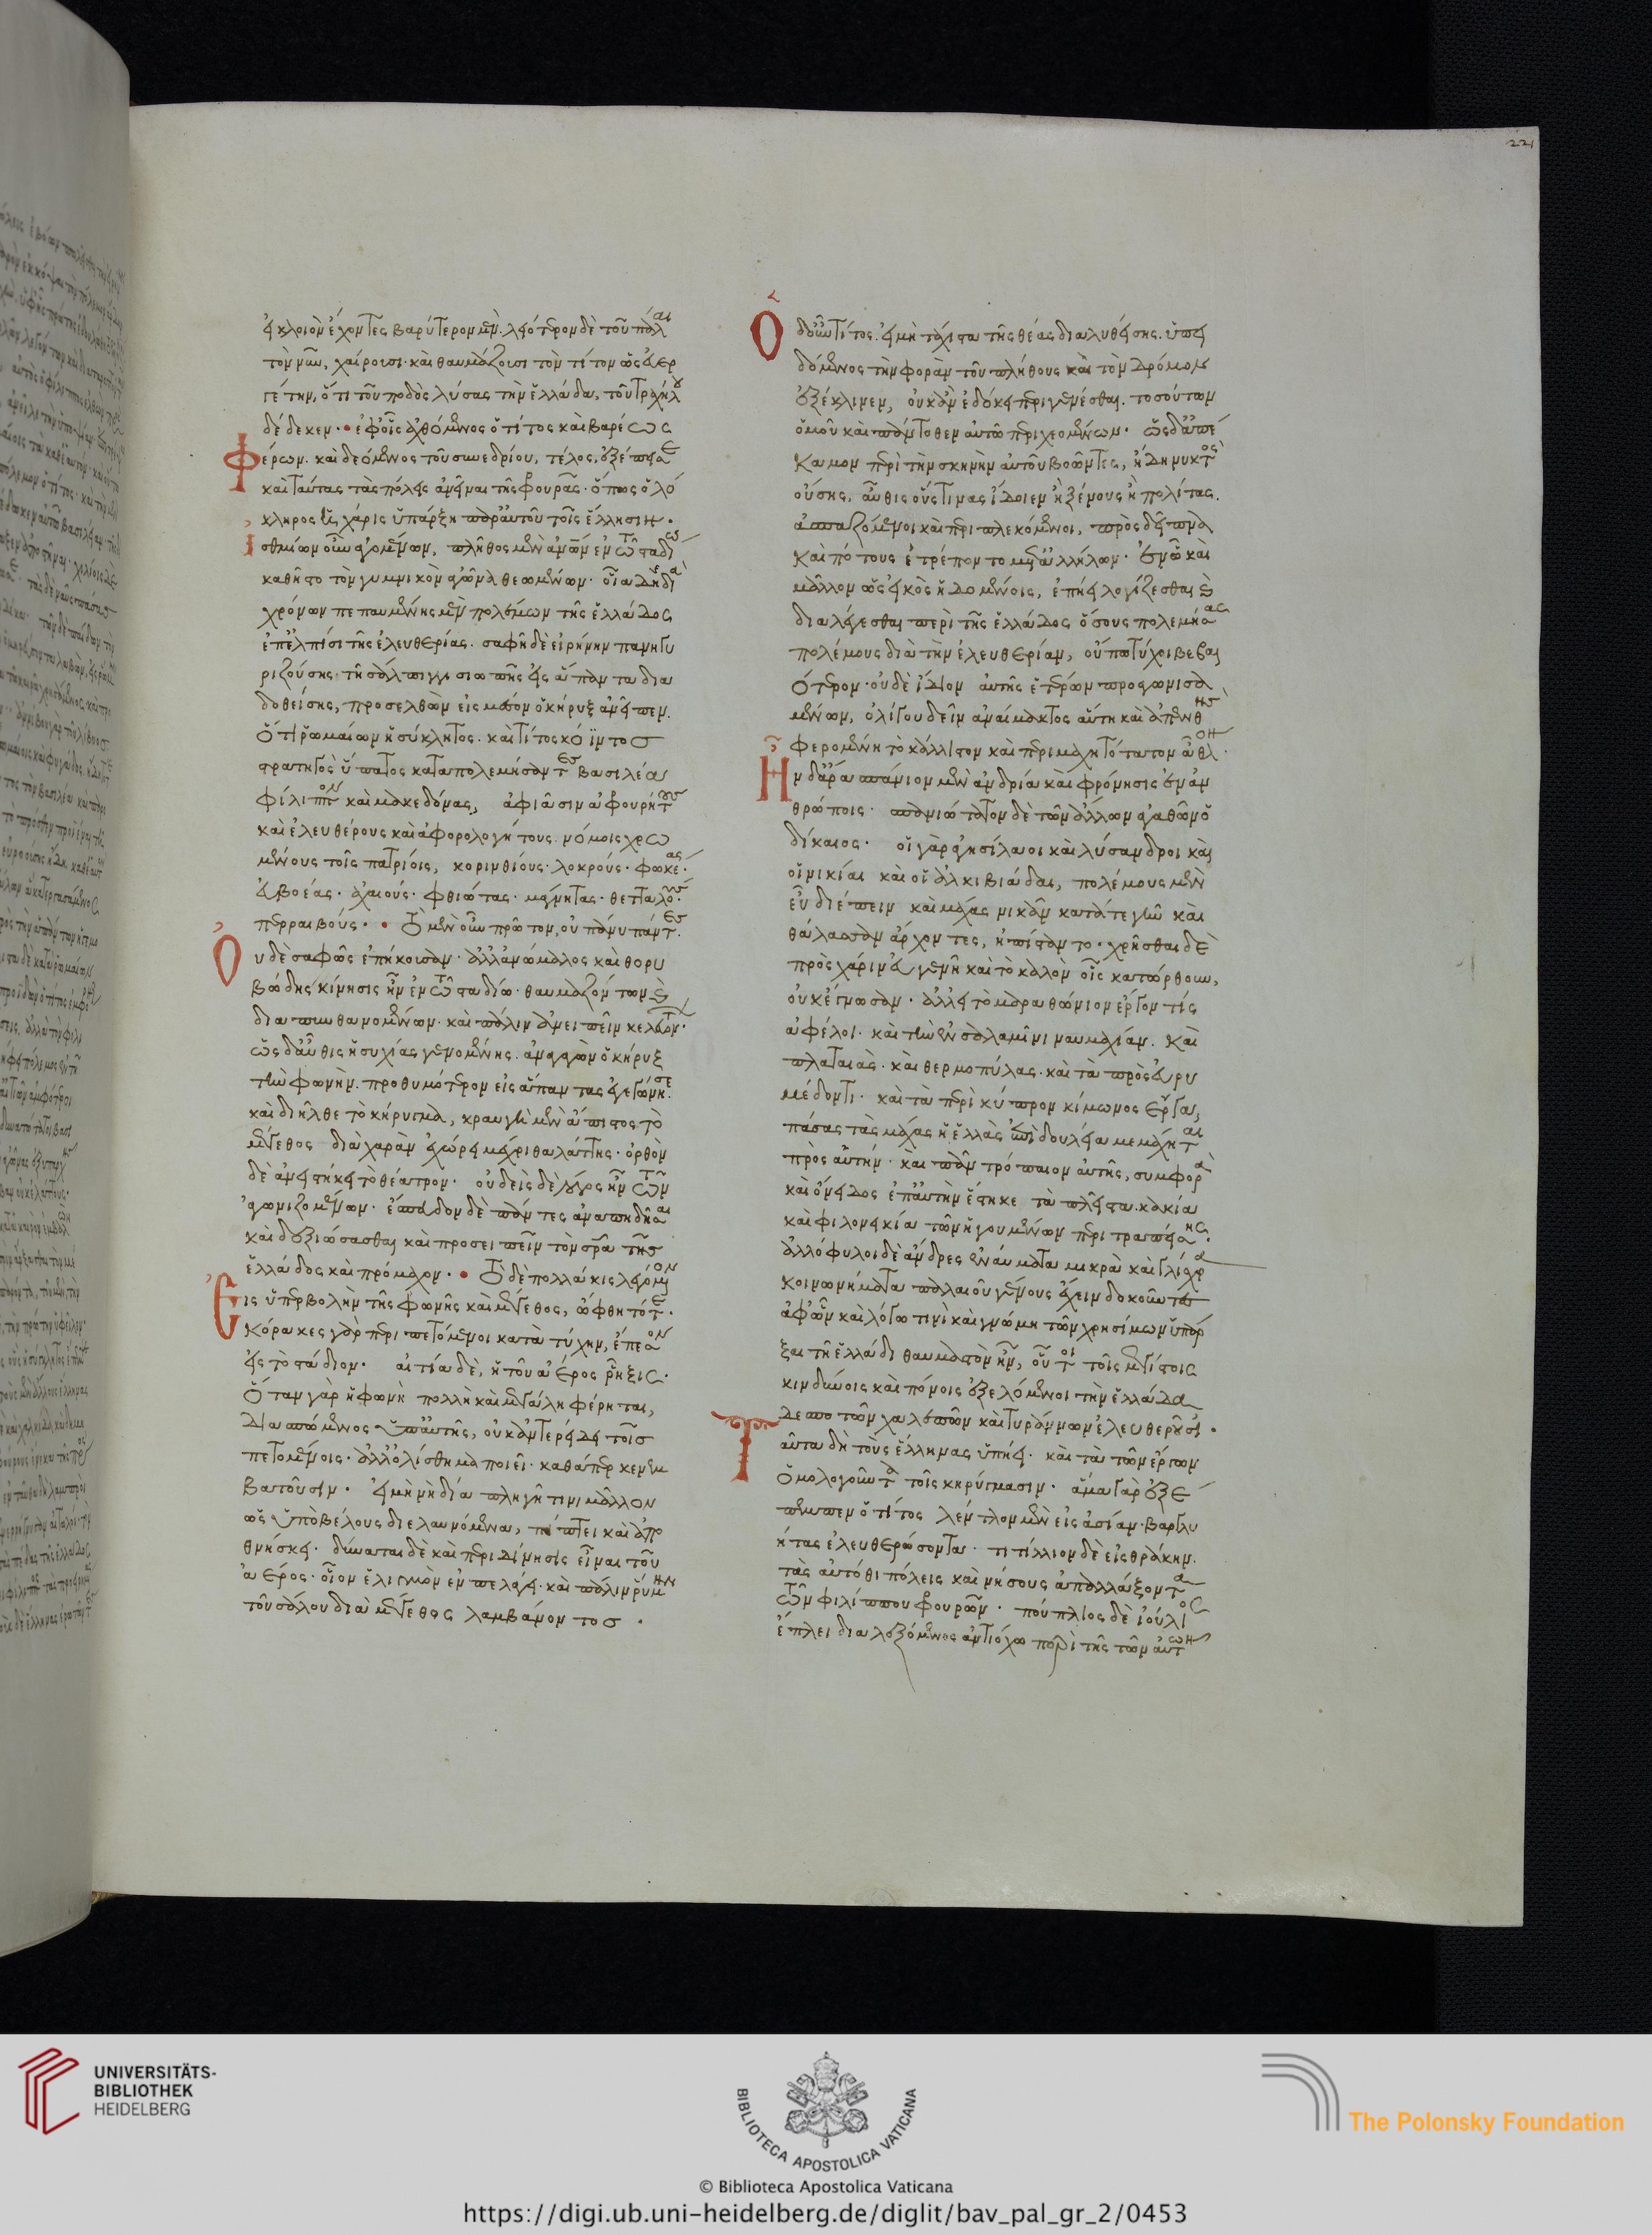 221
εἰ κλοιὸν ἔχοντες βαρύτερον μὲν. λειότερον δὲ τοῦ πάλαι
τὸν νῦν, χαίρουσι. καὶ θαυμάζουσι τὸν τίτον ὡς εὐερ
γέτην, ὅτι τοῦ ποδὸς λύσας τὴν ἑλλάδα, τοῦ τραχήλου
δέδεκεν. ἐφ' οἷς ἀχθόμενος ὁ τίτος καὶ βαρέως
Φέρων. καὶ δεόμενος τοῦ συνεδρίου, τέλος, ἐξέπεισε
καὶ ταύτας τὰς πόλεις ἀνεῖναι τῆς φρουρᾶς. ὅπως ὁλό
κληρος ἡ χάρις ὑπάρξη παρ' αὐτοῦ τοῖς ἕλλησιν.
ἰσθμίων οὖν ἀγομένων, πλῆθος μὲν ἀνθρώπων ἐν τῶ σταδίω
καθῆστο τὸν γυμνικὸν ἀγῶνα θεωμένων. οἷα δὴ διὰ
χρόνων πεπαυμένης μὲν πολέμων τῆς ἑλλάδος
ἐπ' ἐλπίσι τῆς ἐλευθερίας. σαφῆ δὲ εἰρήνην πανηγυ
ριζούσης. τῆ σάλπιγγι σιωπῆς εἰς ἅπαντα δια
δοθείσης, προσελθὼν εἰς μέσον ὁ κήρυξ ἀνεῖπεν.
Ὅτι ῥωμαίων ἡ σύκλητος. καὶ τίτος κοίντος
στρατηγὸς ὕπατος καταπολεμήσαντες βασιλέα
φίλιππον καὶ μακεδόνας, ἀφιᾶσιν ἀφρουρήτους
καὶ ἐλευθέρους καὶ ἀφορολογήτους. νόμοις χρω
μένους τοῖς πατρίοις, κορινθίους. λοκρούς. φωκέας.
εὐβοέας. ἀχαιούς. φθιώτας. μάγνητας. θετταλούς.
περραιβούς. Τὸ μὲν οὖν πρῶτον, οὐ πάνυ πάντες.
Οὐδὲ σαφῶς ἐπήκουσαν. ἀλλ' ἀνώμαλος καὶ θορυ
βώδης κίνησις ἦν ἐν τῶ σταδίω. θαυμαζόντων καὶ
διαπυνθανομένων. καὶ πάλιν ἀνειπεῖν κελευόντων.
ὡς δ' αὖθις ἡσυχίας γενομένης. ἀναγαγὼν ὁ κήρυξ
τὴν φωνὴν. προθυμότερον εἰς ἅπαντας ἐγεγώνησε.
καὶ διῆλθε τὸ κήρυγμα, κραυγὴ μὲν ἄπιστος τὸ
μέγεθος διὰ χαρὰν ἐχώρει μέχρι θαλάττης. ὀρθὸν
δὲ ἀνειστήκει τὸ θέατρον. οὐδεὶς δὲ λόγος ἦν τῶν
ἀγωνιζομένων. ἔσπευδον δὲ πάντες ἀναπηδῆσαι
καὶ δεξιώσασθαι καὶ προσειπεῖν τὸν σωτῆρα τῆς
ἑλλάδος καὶ πρόμαχον. Τὸ δὲ πολλάκις λεγόμενον
Εἰς ὑπερβολὴν τῆς φωνῆς καὶ μέγεθος, ὤφθη τότε.
Κόρακες γὰρ περιπετόμενοι κατὰ τύχην, ἔπεσον
εἰς τὸ στάδιον. αἰτία δὲ, ἡ τοῦ ἀέρος ῥῆξις.
Ὅταν γὰρ ἡ φωνὴ πολλὴ καὶ μεγάλη φέρηται,
διασπώμενος ὑπ' αὐτῆς, οὐκ ἀντερείδει τοῖς
πετομένοις. ἀλλ' ὀλίσθημα ποιεῖ. καθάπερ κενεμ
βατοῦσιν. εἰ μὴ νὴ δία πληγῆ τινι μᾶλλον
ὡς ὑπὸ βέλους διελαυνόμενα, πίπτει καὶ ἀπο
θνήσκει. δύναται δὲ καὶ περιδίνησις εἶναι τοῦ
ἀέρος. οἷον ἑλιγμὸν ἐν πελάγει. καὶ παλινρύμην
τοῦ σάλου διὰ μέγεθος λαμβάνοντος.
Ὁ δ' οὖν Τίτος. εἰ μὴ τάχιστα τῆς θέας διαλυθείσης. ὑπει
δόμενος τὴν φορὰν τοῦ πλήθους καὶ τὸν δρόμον
ἐξέκλινεν, οὐκ ἂν ἐδόκει περιγενέσθαι. τοσούτων
ὁμοῦ καὶ πάντοθεν αὐτῶ περιχεομένων. ὡς δ' ἀπέ
καμον περὶ τὴν σκηνὴν αὐτοῦ βοῶντες, ἤδη νυκτὸς
οὔσης, αὖθις οὕστινας ἴδοιεν ἢ ξένους ἢ πολίτας.
ἀσπαζόμενοι καὶ περιπλεκόμενοι, πρὸς δεῖπνα
καὶ πότους ἐτρέποντο μετ' ἀλλήλων. ἐν ὧ καὶ
μᾶλλον ὡς εἰκὸς ἡδομένοις, ἐπήει λογίζεσθαι καὶ
διαλέγεσθαι περὶ τῆς ἑλλάδος ὅσους πολεμήσασα
πολέμους διὰ τὴν ἐλευθερίαν, οὔπω τύχοι βεβαι
ότερον. οὐδὲ ἥδιον αὐτῆς ἑτέρων προαγωνισα
μένων, ὀλίγου δεῖν ἀναίμακτος αὕτη καὶ ἀπενθὴς
φερομένη τὸ κάλλιστον καὶ περιμαχητότατον ἆθλον.
Ἦν δ' ἄρα σπάνιον μὲν ἀνδρία καὶ φρόνησις ἐν ἀν
θρώποις. σπανιώτατον δὲ τῶν ἄλλων ἀγαθῶν ὁ
δίκαιος. οἱ γὰρ ἀγησίλαοι καὶ λύσανδροι καὶ
οἱ νικίαι καὶ οἱ ἀλκιβιάδαι, πολέμους μὲν
εὖ διέπειν καὶ μάχας νικᾶν κατά τε γῆν καὶ
θάλασσαν ἄρχοντες, ἠπίσταντο. χρῆσθαι δὲ
πρὸς χάριν εὐγενῆ καὶ τὸ καλὸν οἷς κατώρθουν,
οὐκ ἔγνωσαν. ἀλλ' εἰ τὸ μαραθώνιον ἔργον τίς
ἀφέλοι. καὶ τὴν ἐν σαλαμῖνι ναυμαχίαν. καὶ
πλαταιὰς. καὶ θερμοπύλας. καὶ τὰ πρὸς εὐρυ
μέδοντι. καὶ τὰ περὶ κύπρον κίμωνος ἔργα,
πάσας τὰς μάχας ἡ ἑλλὰς ἐπὶ δουλεία μεμάχηται
πρὸς αὑτήν. καὶ πᾶν τρόπαιον αὐτῆς, συμφορὰ
καὶ ὄνειδος ἐπ' αὐτὴν ἕστηκε τὰ πλεῖστα. κακία
καὶ φιλονεικία τῶν ἡγουμένων περιτραπείσης.
ἀλλόφυλοι δὲ ἄνδρες ἐναύσματα μικρὰ καὶ γλίσχρα
κοινωνήματα παλαιοῦ γένους ἔχειν δοκοῦντες
ἀφ' ὧν καὶ λόγω τινὶ καὶ γνώμη τῶν χρησίμων ὑπάρ
ξαι τῆ ἑλλάδι θαυμαστὸν ἦν, οὗτοι τοῖς μεγίστοις
κινδύνοις καὶ πόνοις ἐξελόμενοι τὴν ἑλλάδα
δεσποτῶν χαλεπῶν καὶ τυράννων ἐλευθεροῦσι.
Ταῦτα δὴ τοὺς ἕλληνας ὑπήει. καὶ τὰ τῶν ἔργων
ὁμολογοῦντα τοῖς κηρύγμασιν. ἅμα γὰρ ἐξέ
πεμπεν ὁ τίτος λέντλον μὲν εἰς ἀσίαν. βαργυ
ήτας ἐλευθερώσοντα. τιτίλλιον δὲ εἰς θράκην.
τὰς αὐτόθι πόλεις καὶ νήσους ἀπαλλάξοντα
τῶν φιλίππου φρουρῶν. πούπλιος δὲ ἰούλιος
ἔπλει διαλεξόμενος ἀντιόχω περὶ τῆς τῶν αὐτῶν
UNIVERSITÄTS-
BIBLIOTHEK
HEIDELBERG
BIBLIOTECA APOSTOLICA VATICANA
The Polonsky Foundation
© Biblioteca Apostolica Vaticana
https://digi.ub.uni-heidelberg.de/diglit/bav_pal_gr_2/0453